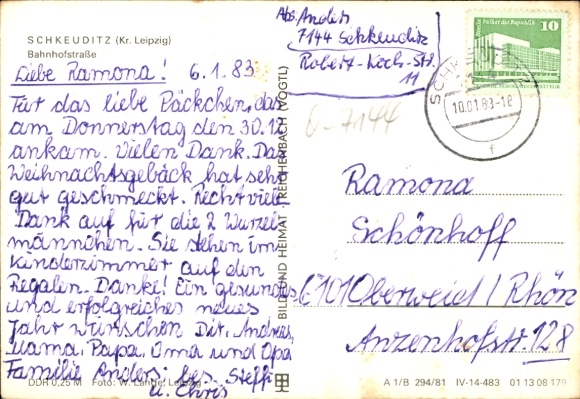 SCHKEUDITZ (Kr. Leipzig)
Bahnhofstraße
Liebe Ramona! 6.1.83
Für das liebe Päckchen, das
am Donnerstag den 30.12
ankam. Vielen Dank. Das
Weihnachtsgebäck hat sehr
gut geschmeckt. Recht viele
Dank auf für die 2 Wurzel
männchen. Sie stehen im
Kinderzimmer auf den
Regalen. Danke! Ein gesundes
und erfolgreiches neues
Jahr wünschen Dir, Andreas,
Mama, Papa, Oma und Opa
Familie Anders: bes. Steffi
u. Chris
DDR 0,25 M Foto: W. Lange, Leipzig
BILD UND HEIMAT REICHENBACH (VOGTL)
Abs. Anders
7144 Schkeuditz
Robert-Koch-Str.
11
Berlin Palast der Republik 10
DDR
SCHKEUDITZ
10.01.83-18
f
6-7144
Ramona
Schönhoff
6101 Oberweid / Rhön
Anzenhofstr. 128
A 1/B 294/81 IV-14-483 01 13 08 179